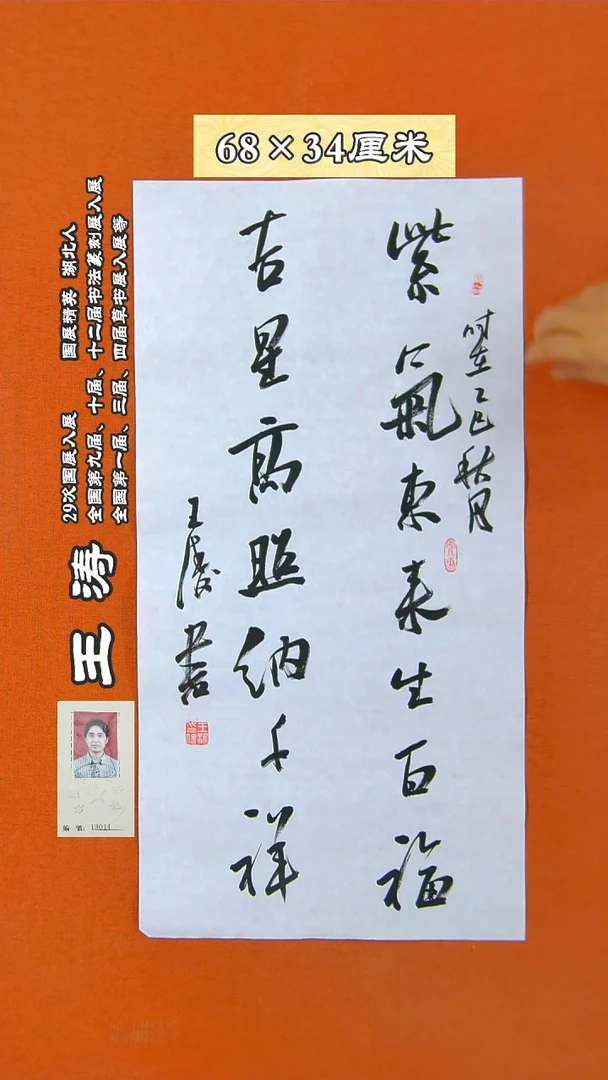 68×34厘米
紫氣東来生百福
吉星高照纳千祥
时在乙巳秋月
王濤書
王涛
29次国展入展 国展精英 湖北人
全国第九届、十届、十二届书法篆刻展入展
全国第一届、三届、四届草书展入展等
编 号：13014